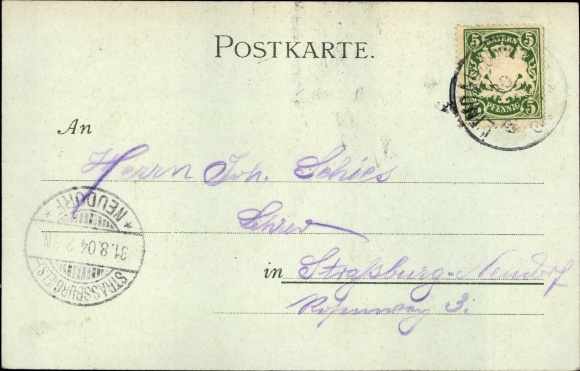 POSTKARTE.
5 BAYERN 5
5 PFENNIG 5
An
Herrn Joh. Schies
in Straßburg-Neudorf
3.
* NEUDORF *
31.8.04 2-3N
STRASSBURG (ELS)